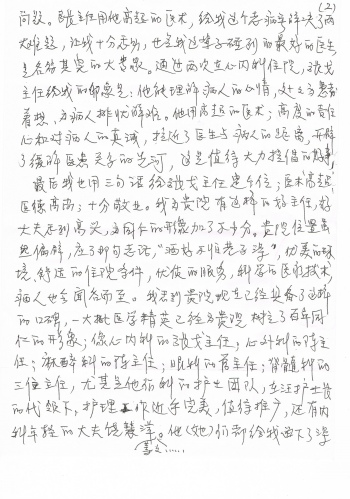 (2)
问题。张主任用他高超的医术,给我这个老病号解决了两
大难题,让我十分感动,也是我这辈子碰到的最好的医生
是名符其实的大专家。通过两次在心内科住院,张戈
主任给我的印象是:他能理解病人的心情,处处为患者
着想,为病人排忧解难。他用高超的医术;高度的责任
心和对病人的真诚,拉近了医生与病人的距离,开辟
了缓解医患关系的先河,这是值得大力提倡的
最后我也用三句话给张戈主任定个位:医术高超;
医德高尚;十分敬业。我为贵院有这样的好主任,好
大夫感到高兴,为同仁的形象加了不少分。贵院位置虽
然偏僻,应了那句老话,“酒好不怕巷子深”,优美的环
境、舒适的住院条件,优质的服务,科学的医疗技术,
病人也会闻名而至。我看到贵院现在已经具备了这样
的口碑,一大批医学精英已经为贵院树立了百年同
仁的形象;像心内科的张戈主任;心外科的陈主
任;麻醉科的陈主任;眼科的唐主任;脊髓科的
三位主任,尤其是他们科的护士团队,在汪护士长
的代领下,护理工作近乎完美,值得推广,还有内
科年轻的大夫饶慧萍。他(她)们都给我留下了深
善之......